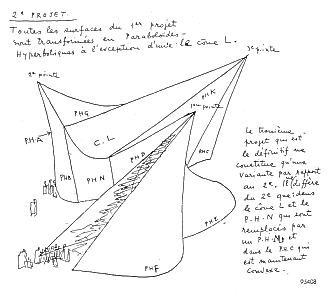 2e PROJET.
Toutes les surfaces du 1er projet
sont transformées en Paraboloïdes-
Hyperboliques à l'exception d'une: le cône L.
3e pointe
2e pointe
PHK
1ère pointe
PHG
PHA
C.L
PHD
PHC
PHB
PHN
PHE
PHF
Le troisième
projet qui est
le définitif ne
constitue qu'une
variante par rapport
au 2e. Il diffère
du 2e que dans
le cône L et le
P-H-N qui sont
remplacés par
un P-H- et
dans le P.H.C qui
est maintenant
convexe.